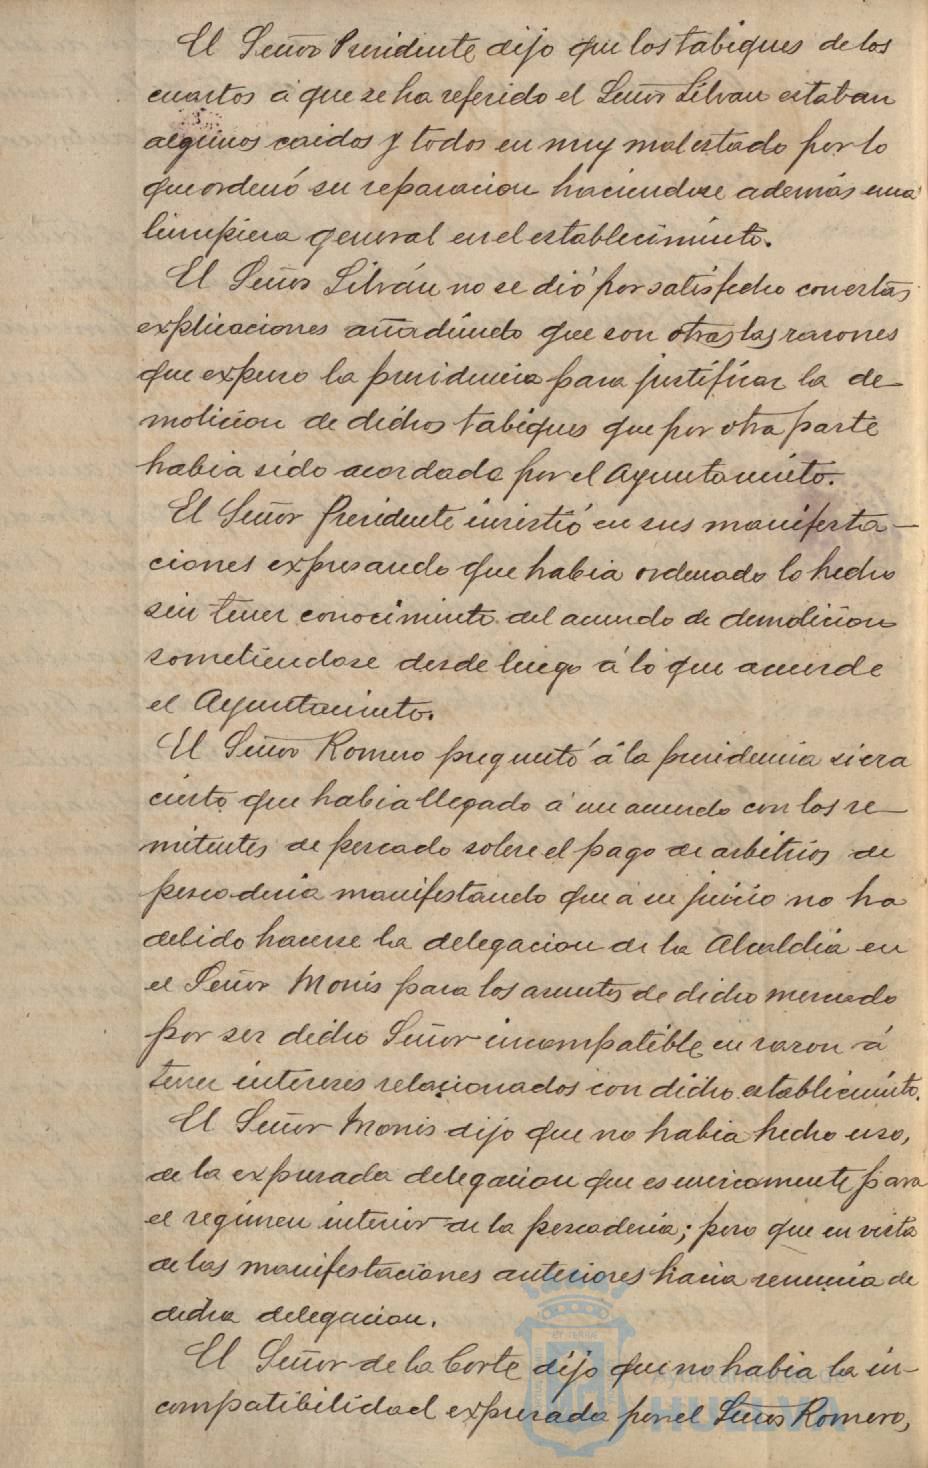 El Señor Presidente dijo que los tabiques de los
cuartos á que se ha referido el Señor Silvan estaban
algunos caidos y todos en muy mal estado por lo
que ordenó su reparacion haciendose además una
limpieza general en el establecimiento.
El Señor Silván no se dió por satisfecho con estas
explicaciones añadiendo que son otras las razones
que expuso la presidencia para justificar la de-
molicion de dichos tabiques que por otra parte
habia sido acordada por el Ayuntamiento.
El Señor Presidente insistió en sus manifesta-
ciones expresando que habia ordenado lo hecho
sin tener conocimiento del acuerdo de demolicion
sometiendose desde luego á lo que acuerde
el Ayuntamiento.
El Señor Romero preguntó á la presidencia si era
cierto que habia llegado á un acuerdo con los re-
mitentes de pescado sobre el pago de arbitrios de
pescaderia manifestando que á su juicio no ha
debido hacerse la delegacion de la Alcaldia en
el Señor Monis para los asuntos de dicho mercado
por ser dicho Señor incompatible en razon á
tener intereses relacionados con dicho establecimiento.
El Señor Monis dijo que no habia hecho uso,
de la expresada delegacion que es unicamente para
el regimen interior de la pescaderia; pero que en vista
de las manifestaciones anteriores hacia renuncia de
dicha delegacion.
El Señor de la Corte dijo que no habia la in-
compatibilidad expresada por el Señor Romero,
Ayuntamiento de
HUELVA